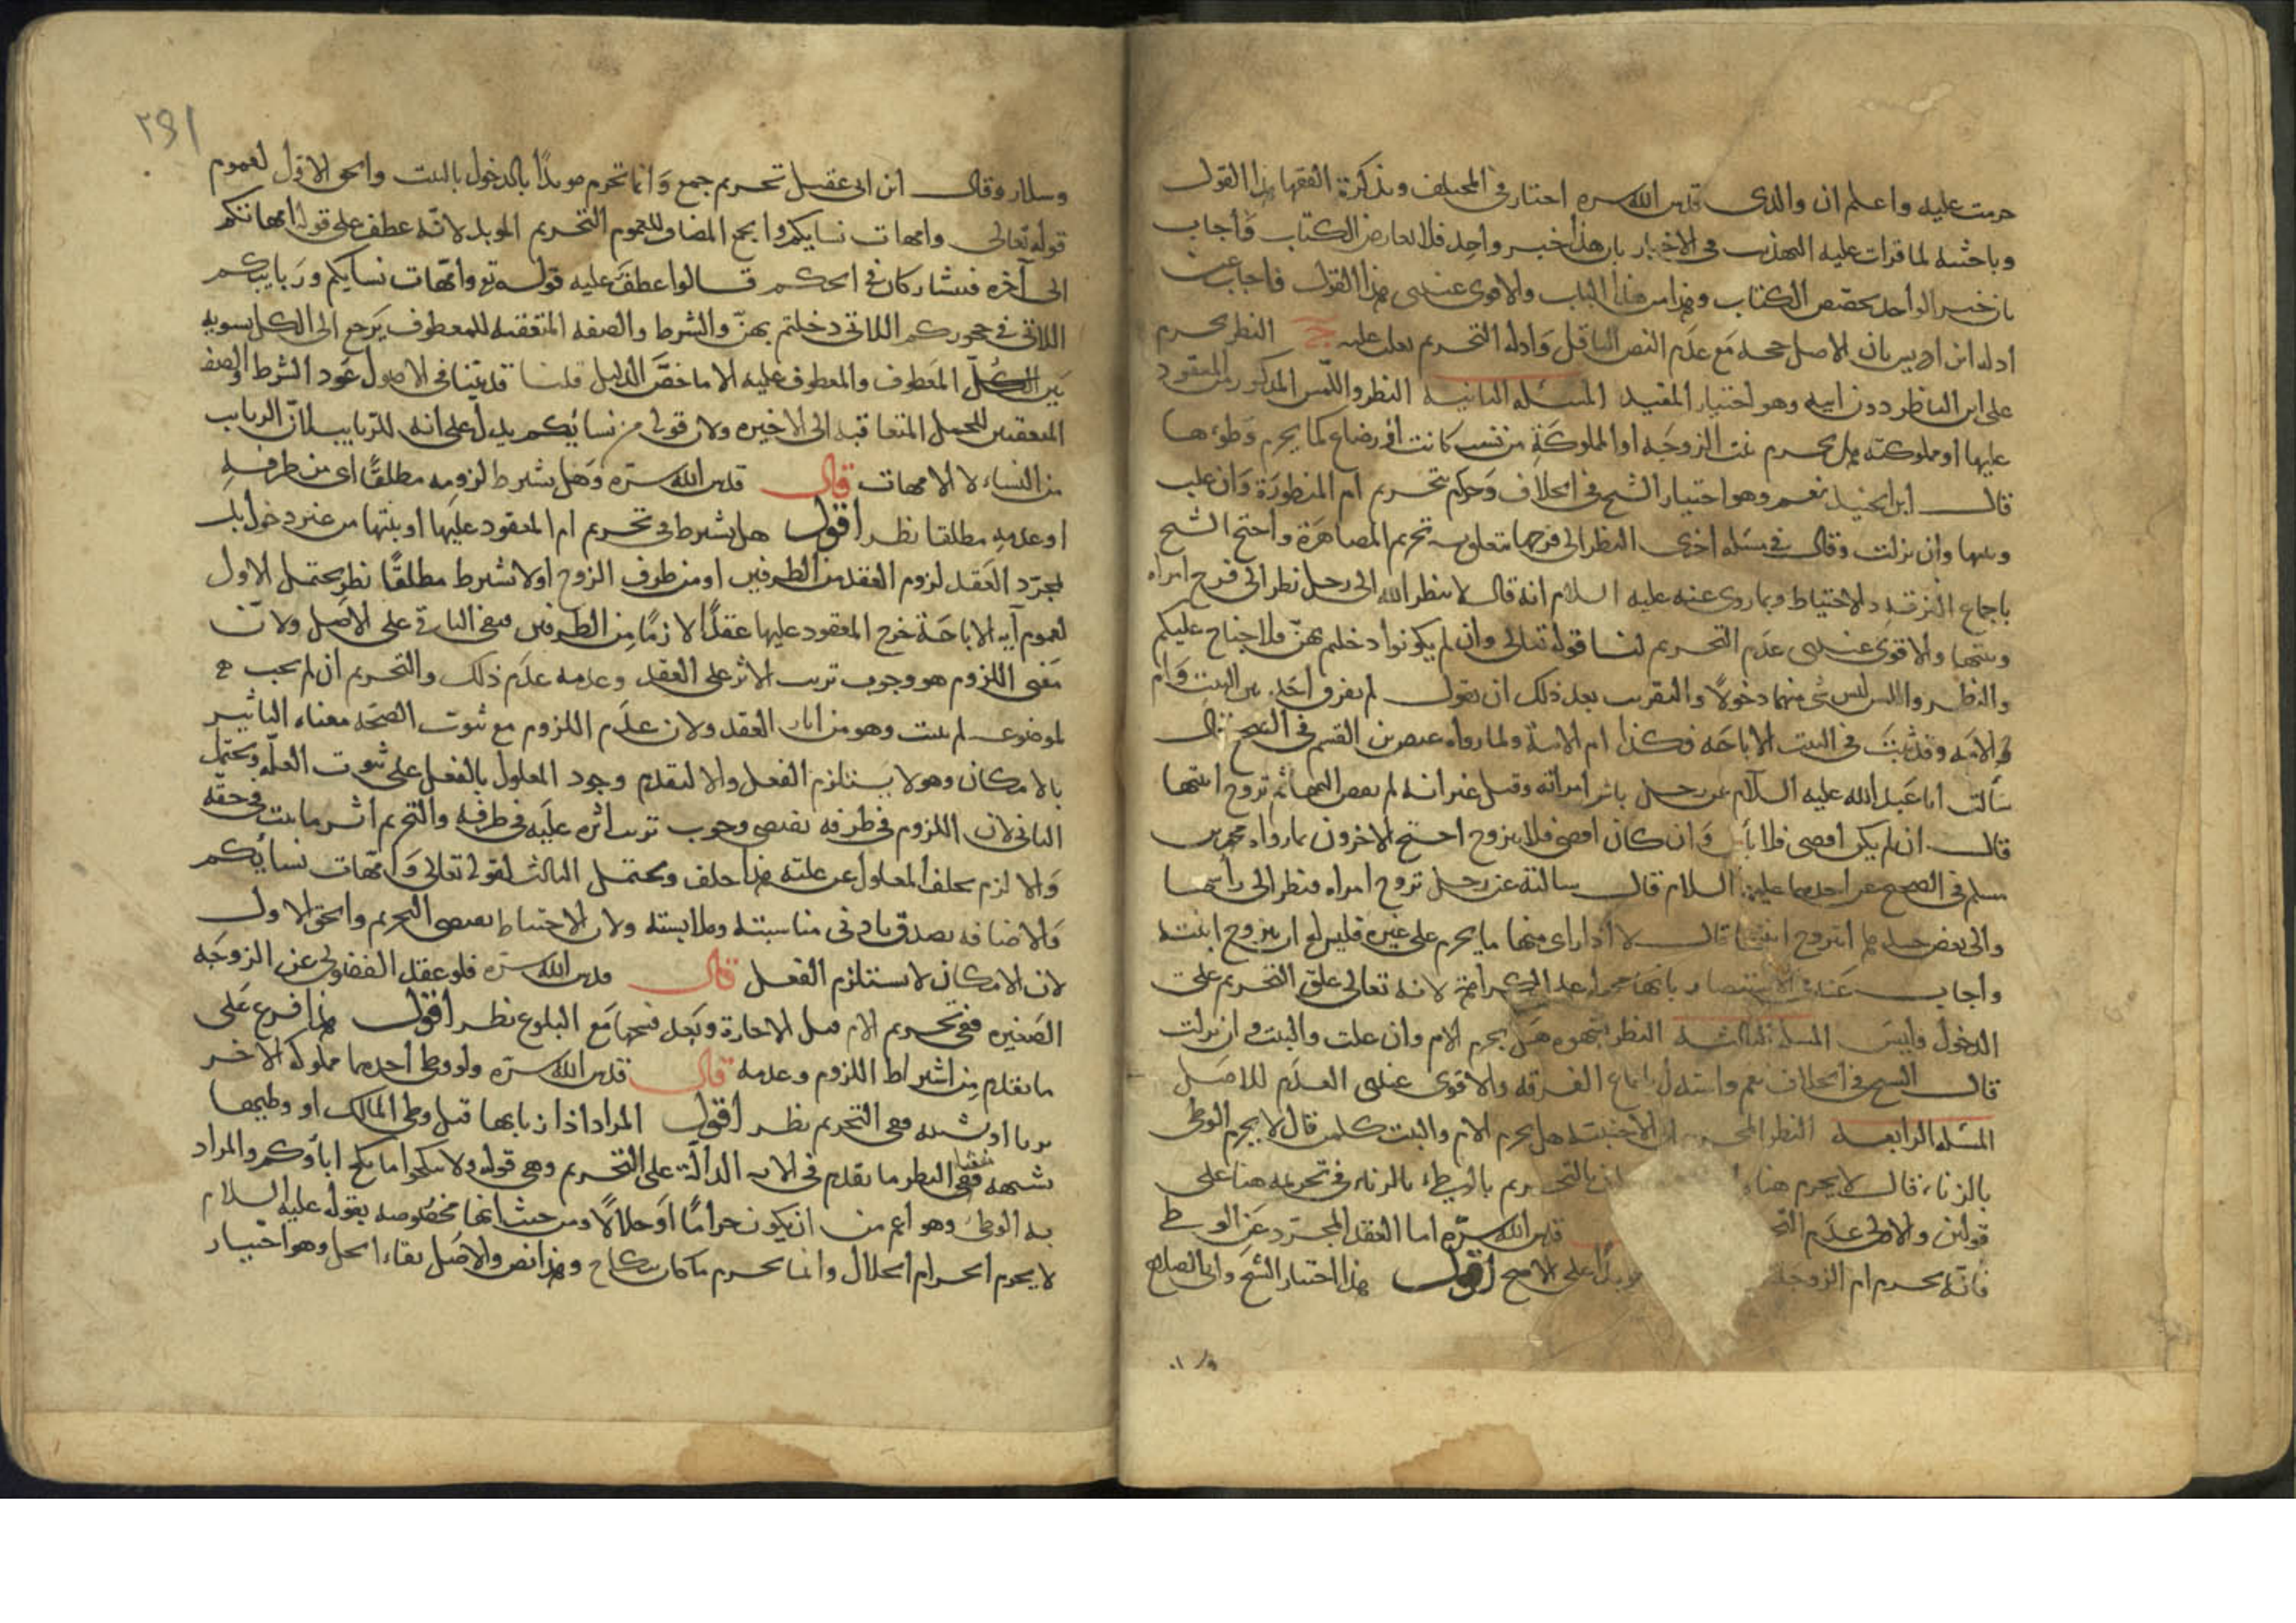 حرمت عليه واعلم ان والدى قدس الله سره اختار فى المختلف وتذكرة الفقها هذا القول
وباحثته لما قرات عليه التهذيب فى الاخبار بان هذا خبر واحد فلا يعارض الكتاب فأجاب
بان خبر الواحد يخصص الكتاب وهذا من هذا الباب والاقوى عندى هذا القول فاجاب عن
ادلة ابن ادريس بان الاصل حجة مع عدم النص الناقل وادلة التحريم تغلب عليه النظر يحرم
على ابن الناظر دون ابيه وهو اختيار المفيد المسئلة الثانية النظر واللمس المذكور من المعقود
عليها او مملوكته هل يحرم بنت الزوجة او المملوكة من نسب كانت او رضاع كما يحرم وطوءها
قال ابن الجنيد نعم وهو اختيار الشيخ فى الخلاف وحكم بتحريم ام المنظورة وان علت
وبنتها وان نزلت وقال فى مسئلة اخرى النظر الى فرجها متعلق به تحريم المصاهرة واحتج الشيخ
باجماع الفرقة والاحتياط وبما روى عنه عليه السلام انه قال لا ينظر الله الى رجل نظر الى فرج امراه
وبنتها والاقوى عندى عدم التحريم لنا قوله تعالى وان لم يكونوا دخلتم بهنّ فلا جناح عليكم
والنظر واللمس ليس شى منهما دخولًا والتقريب بعد ذلك ان نقول لم يفرق احد بين البنت وام
الامة وقد ثبتت فى البنت الاباحة فكذا ام الامة ولما رواه عيص بن القسم فى الصحيح قال
سألت ابا عبد الله عليه السلام عن رجل باشر امراته وقبل غير انه لم يفض اليها ثم تزوج ابنتها
قال ان لم يكن افضى فلا بأس وان كان افضى فلا يتزوج احتج الاخرون بما رواه محمد بن
مسلم فى الصحيح عن احدهما عليه السلام قال سالته عن رجل تزوج امراه فنظر الى رأسها
والى بعض جسدها ايتزوج ابنتها قال لا اذا راى منها ما يحرم على غيره فليس له ان يتزوج ابنته
واجاب عنه فى الاستبصار بانها محمولة على الكراهة لانه تعالى علق التحريم على
الدخول وليس المسئلة الثالثة النظر بشهوة هل يحرم الام وان علت والبنت وان نزلت
قال الشيخ فى الخلاف نعم واستدل باجماع الفرقة والاقوى عندى العدم للاصل
المسئلة الرابعة النظر المحرم الى الاجنبية هل يحرم الام والبنت كلمن قال لا يحرم الوطى
بالزناء قال لا يحرم هناء التحريم بالوطء بالزناء فى تحريمه هنا على
قولين والاولى عدم قدس الله سره اما العقد المجرد عن الوطى
فانه يحرم ام الزوجة مؤبدًا على الاصح اقول هذا اختيار الشيخ وابى الصلاح
٢٩١
وسلار وقال ابن ابى عقيل تحريم جمع وانما تحرم مؤبدًا بالدخول بالبنت والحق الاول لعموم
قوله تعالى وامهات نسايكم والجمع المضاف للعموم التحريم المؤبد لانه عطف على قوله امهاتكم
الى آخره فيتشاركان فى الحكم قالوا عطف عليه قوله تع وامهات نسايكم وربايبكم
اللاتى فى حجوركم اللاتى دخلتم بهنّ والشرط والصفة المتعقبة للمعطوف يرجع الى الكل بسوية
بين الكلّ المعطوف والمعطوف عليه الا ما خصّه الدليل قلنا قد بيّنا فى الاصول عود الشرط والصفة
المتعقبين للجمل المتعاقبة الى الاخيرة ولان قوله من نسائكم يدل على انه للربايب لان الربايب
من النساء لا الامهات قال قدس الله سره وهل يشترط لزومه مطلقًا اى من طرفيه
او عدمه مطلقا نظر اقول هل يشترط فى تحريم ام المعقود عليها او بنتها من غير دخول بل
بمجرّد العقد لزوم العقد من الطرفين او من طرف الزوج او لا يشترط مطلقًا نظر يحتمل الاول
لعموم آية الاباحة خرج المعقود عليها عقدًا لازمًا من الطرفين فبقى الباقى على الاصل ولان
معنى اللزوم هو وجوب ترتب الاثر على العقد وعدمه عدم ذلك والتحريم ان لم يجب
لموضوعه لم يثبت وهو من اثار العقد ولان عدم اللزوم مع ثبوت الصحة معناه التأثير
بالامكان وهو لا يستلزم الفعل والا لتقدم وجود المعلول بالفعل على ثبوت العلة ويحتمل
الثانى لان اللزوم فى طرفه يقتضى وجوب ترتب اثره عليه فى طرفه والتحريم اثر ما يثبت فى حقه
والا لزم تخلف المعلول عن علته هذا خلف ويحتمل الثالث لقوله تعالى وامهات نسائكم
والاضافة يصدق بادنى مناسبته وملابسته ولان الاحتياط يقتضى التحريم والحق الاول
لان الامكان لا يستلزم الفعل قال قدس الله سره فلو عقد الفضولى عن الزوجة
الصغيرة ففى تحريم الام قبل الاجازة وبعد فسخها مع البلوغ نظر اقول هذا فرع على
ما تقدم من اشتراط اللزوم وعدمه قال قدس الله سره ولو وطى احدهما مملوكة الاخر
بزنا او شبهه ففى التحريم نظر اقول المراد اذا زنا بها قبل وطى المالك او وطيها
بشبهة منشأ النظر ما تقدم فى الاية الدالة على التحريم وهى قوله ولا تنكحوا ما نكح اباؤكم والمراد
به الوطئ وهو اعم من ان يكون حرامًا او حلالًا ومن حيث انها مخصوصه بقوله عليه السلام
لا يحرم الحرام الحلال وانما يحرم ما كان بنكاح وهذا نص والاصل بقاء الحل وهو اختيار